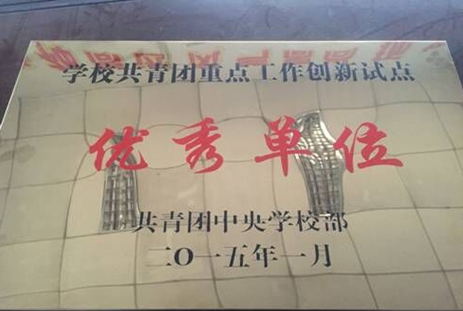 学校共青团重点工作创新试点
优秀单位
共青团中央学校部
二O一五年一月